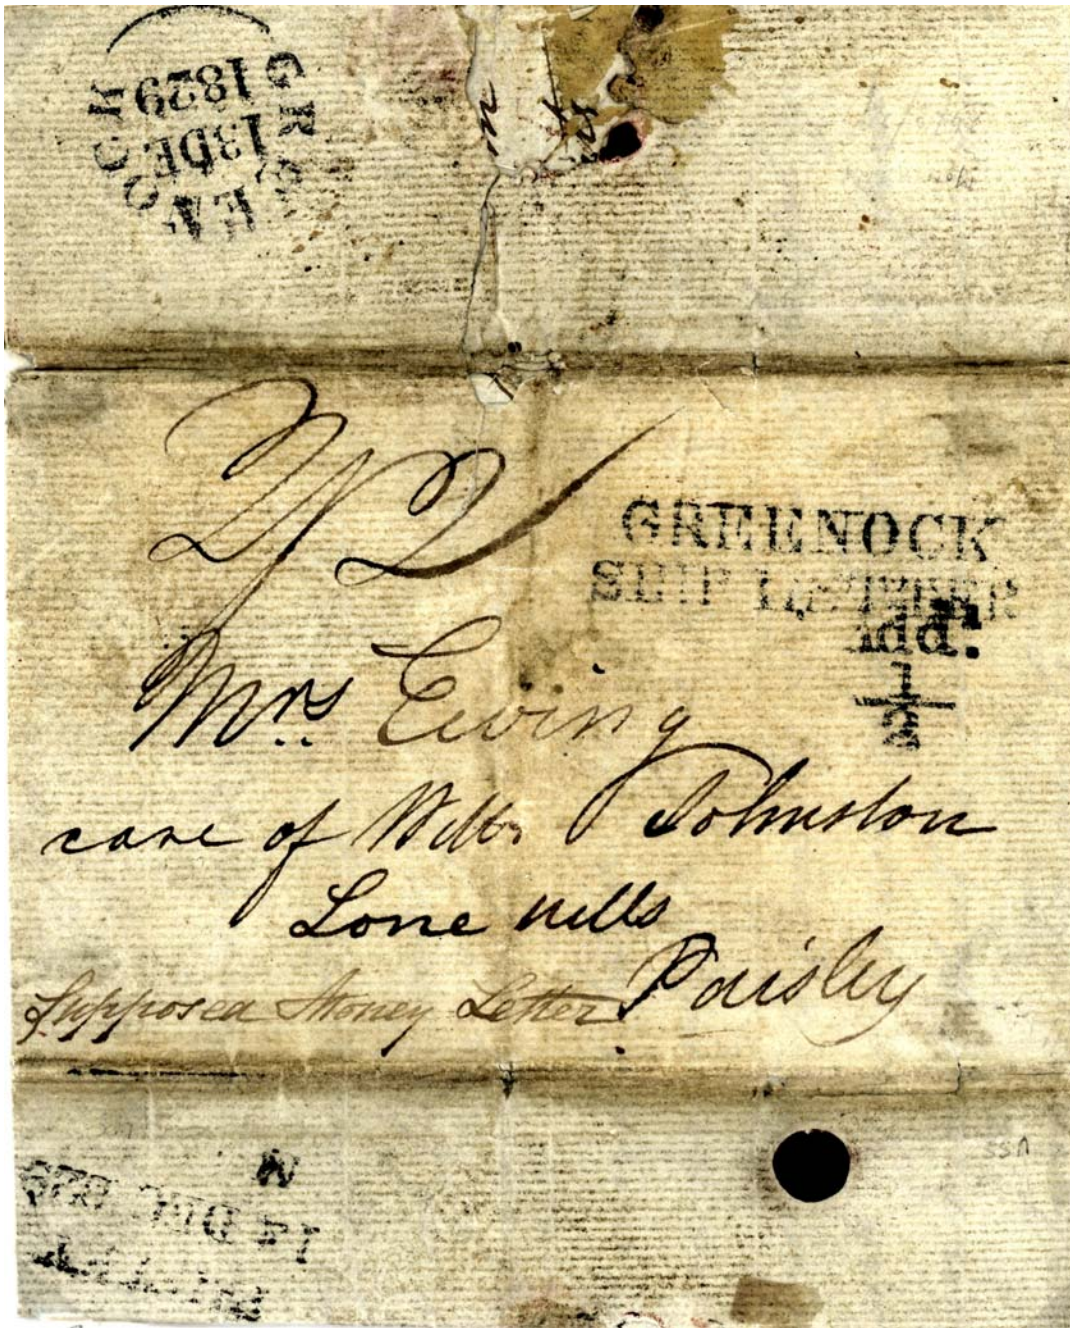 GREENOCK
13 DE
1829
GREENOCK
SHIP LETTER
Add.l
½
Mrs Ewing
care of Johnston
Lone
Paisley
Supposed Money Letter
M
14 DEC 829